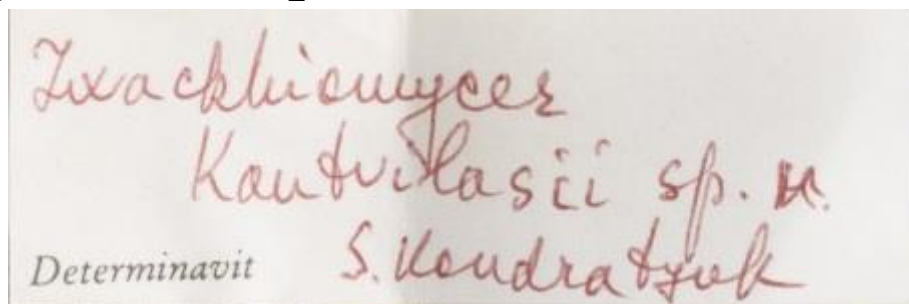 Zwackhiomyces
Kantvilasii sp. n.
Determinavit S. Kondratyuk